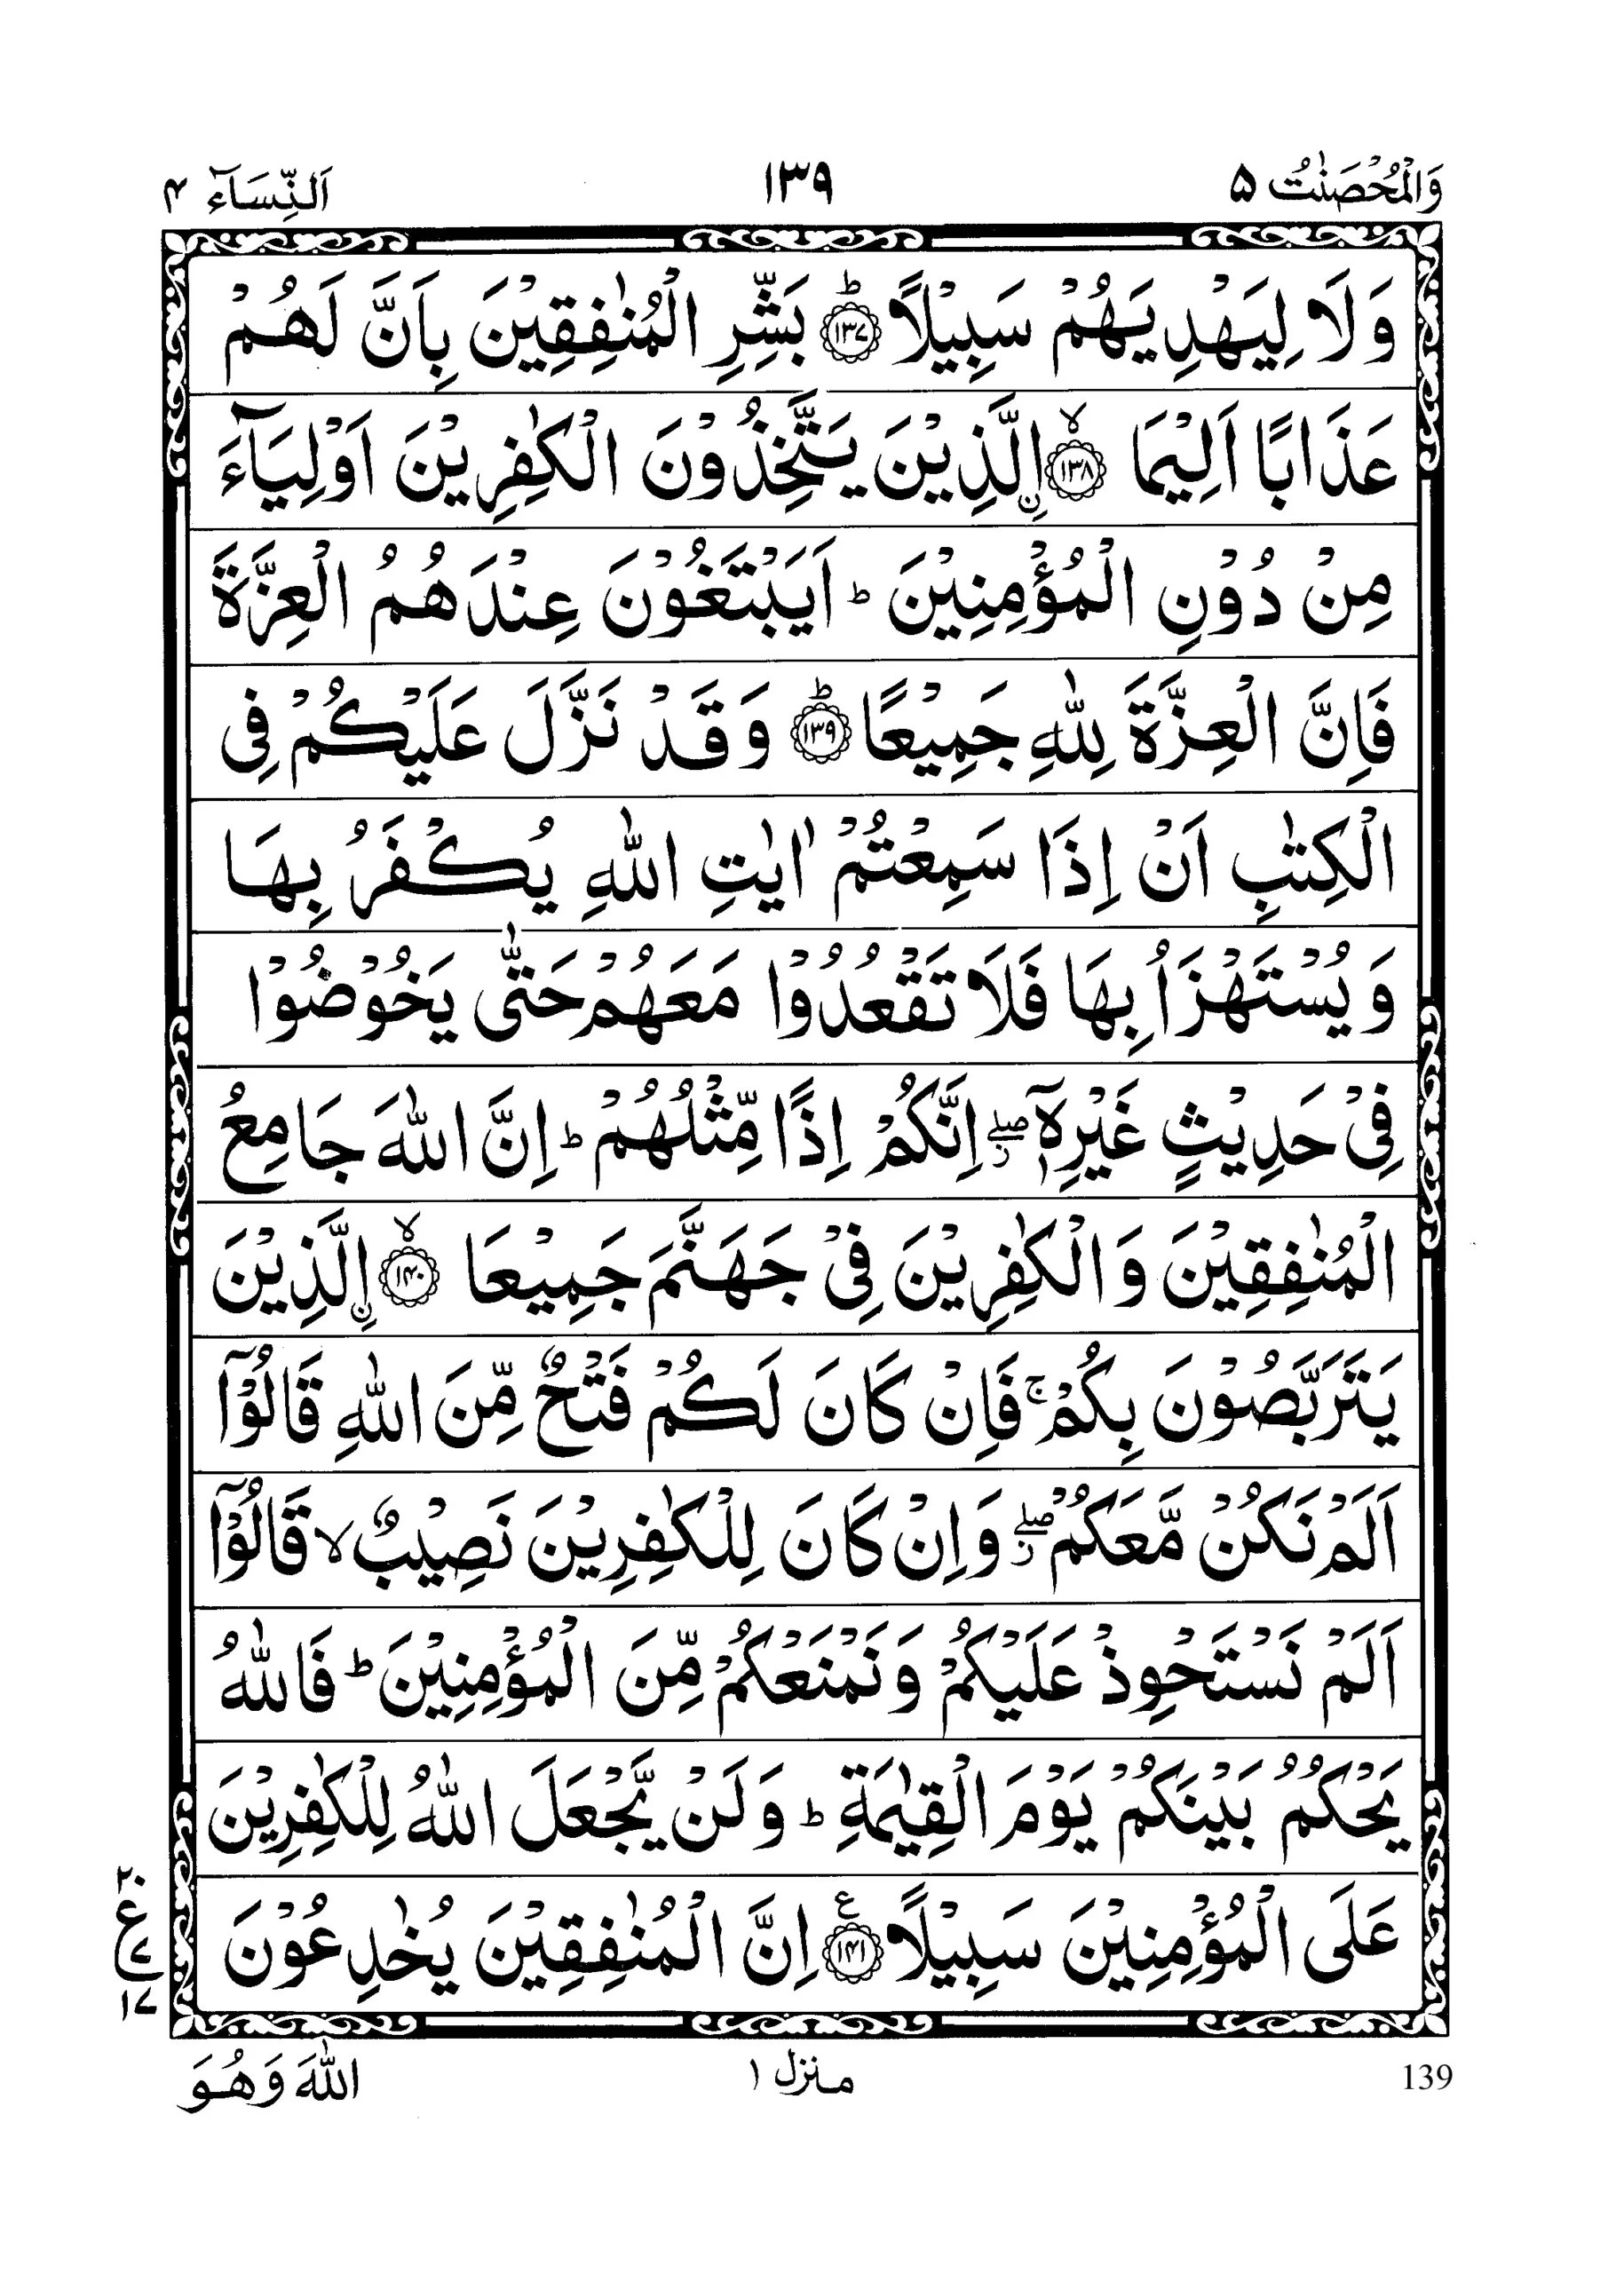 وَالْمُحْصَنٰتُ ۵ ۱۳۹ اَلنِّسَآء ۴
وَلَا لِيَهْدِيَهُمْ سَبِيْلًا ؕ﴿۱۳۷﴾ بَشِّرِ الْمُنٰفِقِيْنَ بِاَنَّ لَهُمْ
عَذَابًا اَلِيْمَا ۙ﴿۱۳۸﴾ اۨلَّذِيْنَ يَتَّخِذُوْنَ الْكٰفِرِيْنَ اَوْلِيَآءَ
مِنْ دُوْنِ الْمُؤْمِنِيْنَ ؕ اَيَبْتَغُوْنَ عِنْدَهُمُ الْعِزَّةَ
فَاِنَّ الْعِزَّةَ لِلّٰهِ جَمِيْعًا ؕ﴿۱۳۹﴾ وَقَدْ نَزَّلَ عَلَيْكُمْ فِي
الْكِتٰبِ اَنْ اِذَا سَمِعْتُمْ اٰيٰتِ اللّٰهِ يُكْفَرُ بِهَا
وَيُسْتَهْزَاُ بِهَا فَلَا تَقْعُدُوْا مَعَهُمْ حَتّٰى يَخُوْضُوْا
فِيْ حَدِيْثٍ غَيْرِهٖۤ ۖز اِنَّكُمْ اِذًا مِّثْلُهُمْ ؕ اِنَّ اللّٰهَ جَامِعُ
الْمُنٰفِقِيْنَ وَالْكٰفِرِيْنَ فِيْ جَهَنَّمَ جَمِيْعَا ۙ﴿۱۴۰﴾ اۨلَّذِيْنَ
يَتَرَبَّصُوْنَ بِكُمْ ۚ فَاِنْ كَانَ لَكُمْ فَتْحٌ مِّنَ اللّٰهِ قَالُوْۤا
اَلَمْ نَكُنْ مَّعَكُمْ ۖز وَاِنْ كَانَ لِلْكٰفِرِيْنَ نَصِيْبٌ ۙ قَالُوْۤا
اَلَمْ نَسْتَحْوِذْ عَلَيْكُمْ وَنَمْنَعْكُمْ مِّنَ الْمُؤْمِنِيْنَ ؕ فَاللّٰهُ
يَحْكُمُ بَيْنَكُمْ يَوْمَ الْقِيٰمَةِ ؕ وَلَنْ يَّجْعَلَ اللّٰهُ لِلْكٰفِرِيْنَ
عَلَى الْمُؤْمِنِيْنَ سَبِيْلًا ﴿۱۴۱﴾ع اِنَّ الْمُنٰفِقِيْنَ يُخٰدِعُوْنَ
۲۰
ع ۷
۱۷
139 منزل ۱ اللّٰهَ وَهُوَ